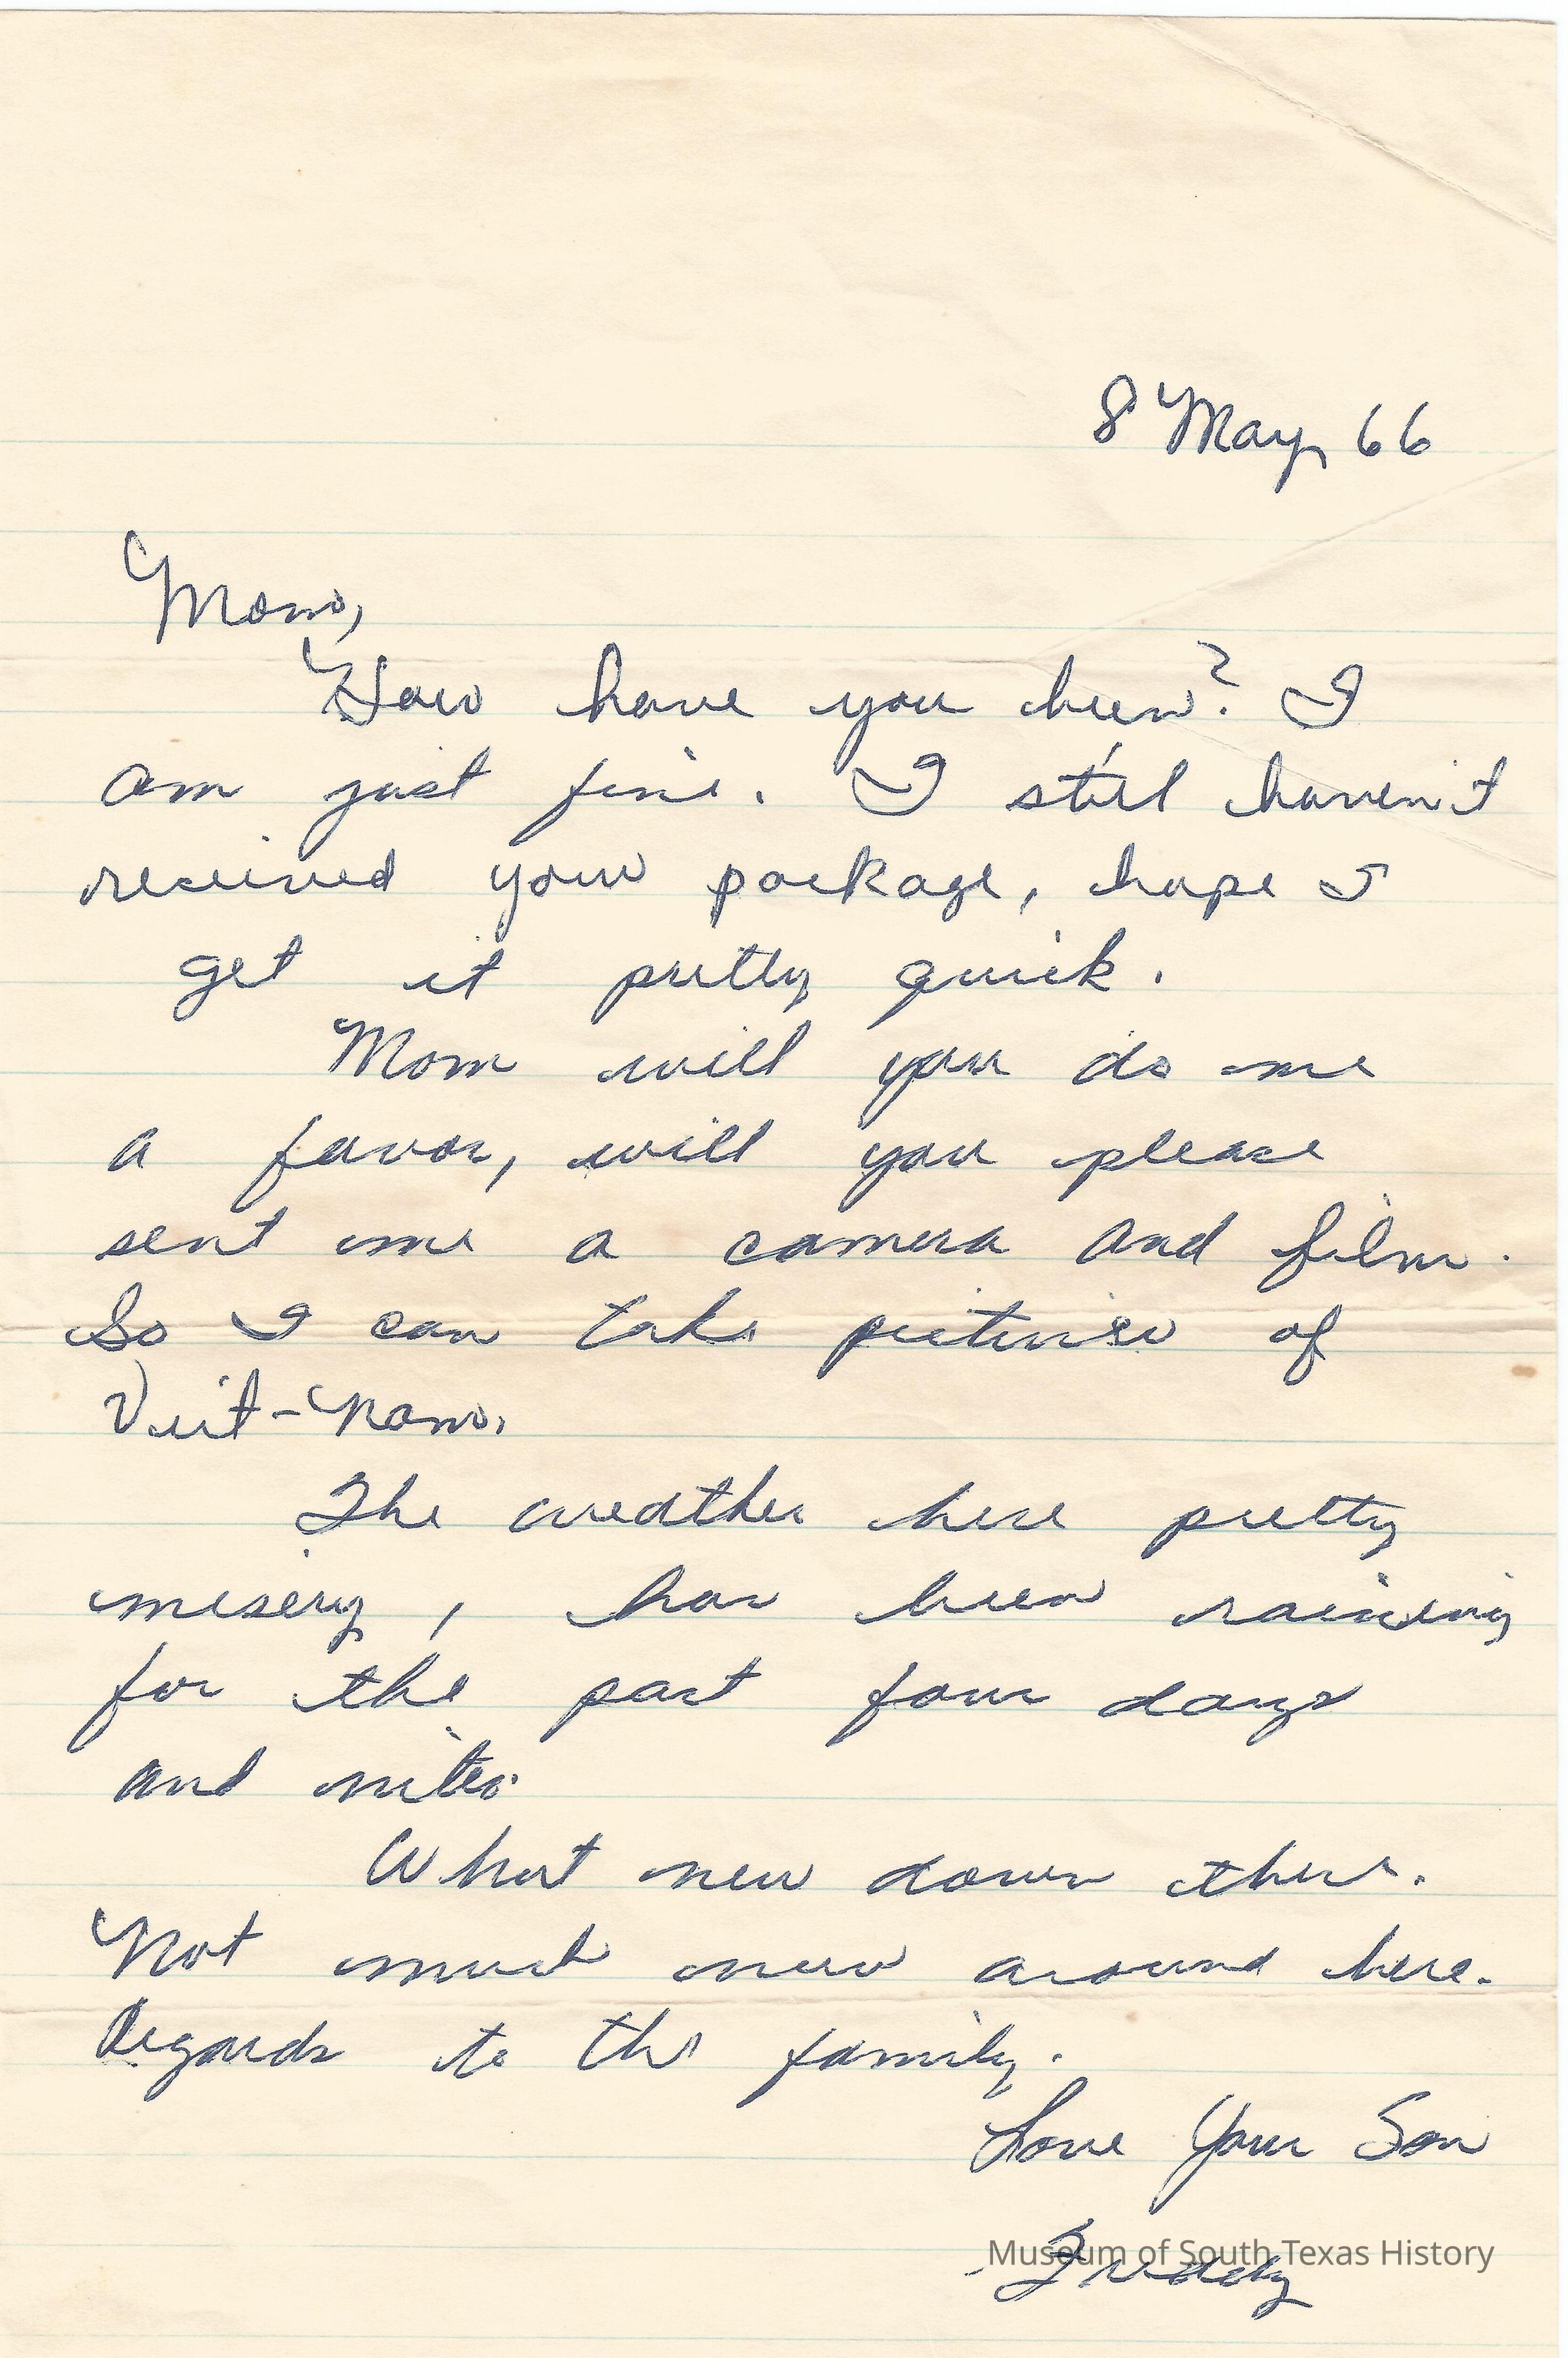 8 May, 66
Mom,
How have you been? I
am just fine. I still haven't
received your package, hope I
get it pretty quick.
Mom will you do me
a favor, will you please
sent me a camera and film.
So I can take pictures of
Viet-Nam.
The weather here pretty
misery, has been raining
for the past four days
and nites.
What new down there.
Not much new around here.
Regards to the family.
Love Your Son
Museum of South Texas History